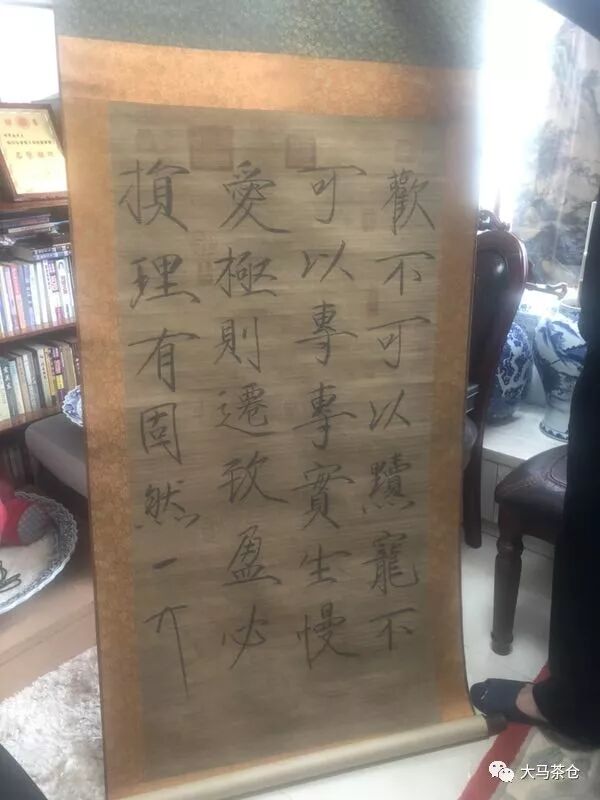 歡不可以黷寵不
可以專專實生慢
愛極則遷致盈必
損理有固然
大马茶仓